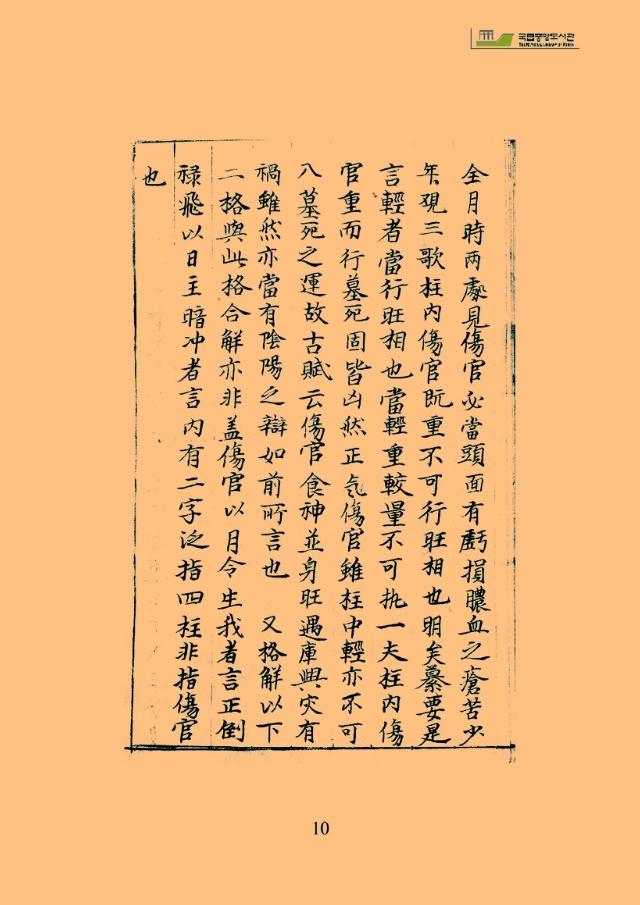 국립중앙도서관
THE NATIONAL LIBRARY OF KOREA
全月時两處見傷官必當頭面有虧損膿血之瘡苦少
年硯三歌柱内傷官既重不可行旺相也明矣纂要是
言輕者當行旺相也當輕重較量不可执一夫柱内傷
官重而行墓死固皆凶然正氣傷官雖柱中輕亦不可
八墓死之運故古賦云傷官食神並身旺遇庫興灾有
禍雖然亦當有陰陽之辯如前所言也 又格解以下
二格與此格合解亦非盖傷官以月令生我者言正倒
祿飛以日主暗冲者言内有二字泛指四柱非指傷官
也
10